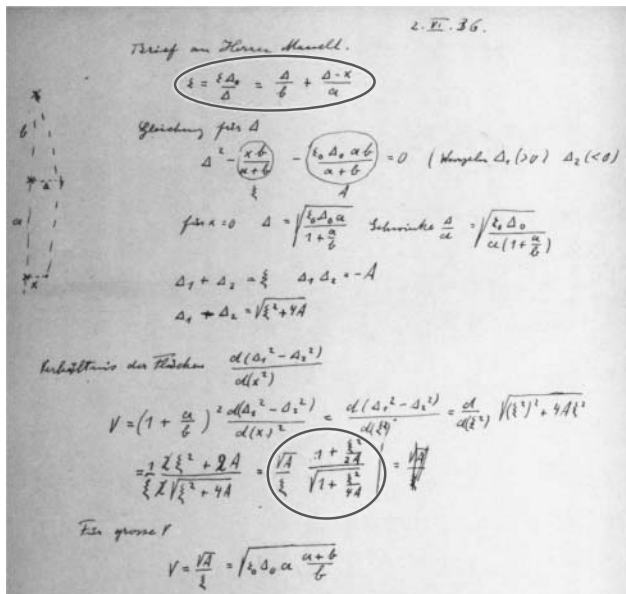 2. VI. 36.
Brief an Herrn Mandl.
ε = ε₀Δ₀/Δ = Δ/b + (Δ-x)/a
b
Δ
a
x
Gleichung für Δ
Δ² - (x b)/(a+b) - (ε₀ Δ₀ a b)/(a+b) = 0 (Wurzeln Δ₁ (>0) Δ₂ (<0)
ξ A
für x=0 Δ = √(ε₀Δ₀a/(1+a/b)) Δ/a = √(ε₀Δ₀/(a(1+a/b)))
Δ₁ + Δ₂ = ξ Δ₁ Δ₂ = -A
Δ₁ + Δ₂ = √(ξ²+4A)
Verhältnis der Flächen d(Δ₁² - Δ₂²)/d(x²)
V = (1 + a/b)² d(Δ₁² - Δ₂²)/d(x)² = d(Δ₁² - Δ₂²)/d(ξ²) = d/d(ξ²) √((ξ²)² + 4Aξ²)
= 1/ξ (2ξ² + 2A)/(2√(ξ² + 4A)) = √A/ξ (1 + ξ²/2A)/√(1 + ξ²/4A)
Für grosse V
V = √A/ξ = √(ε₀ Δ₀ a (a+b)/b)